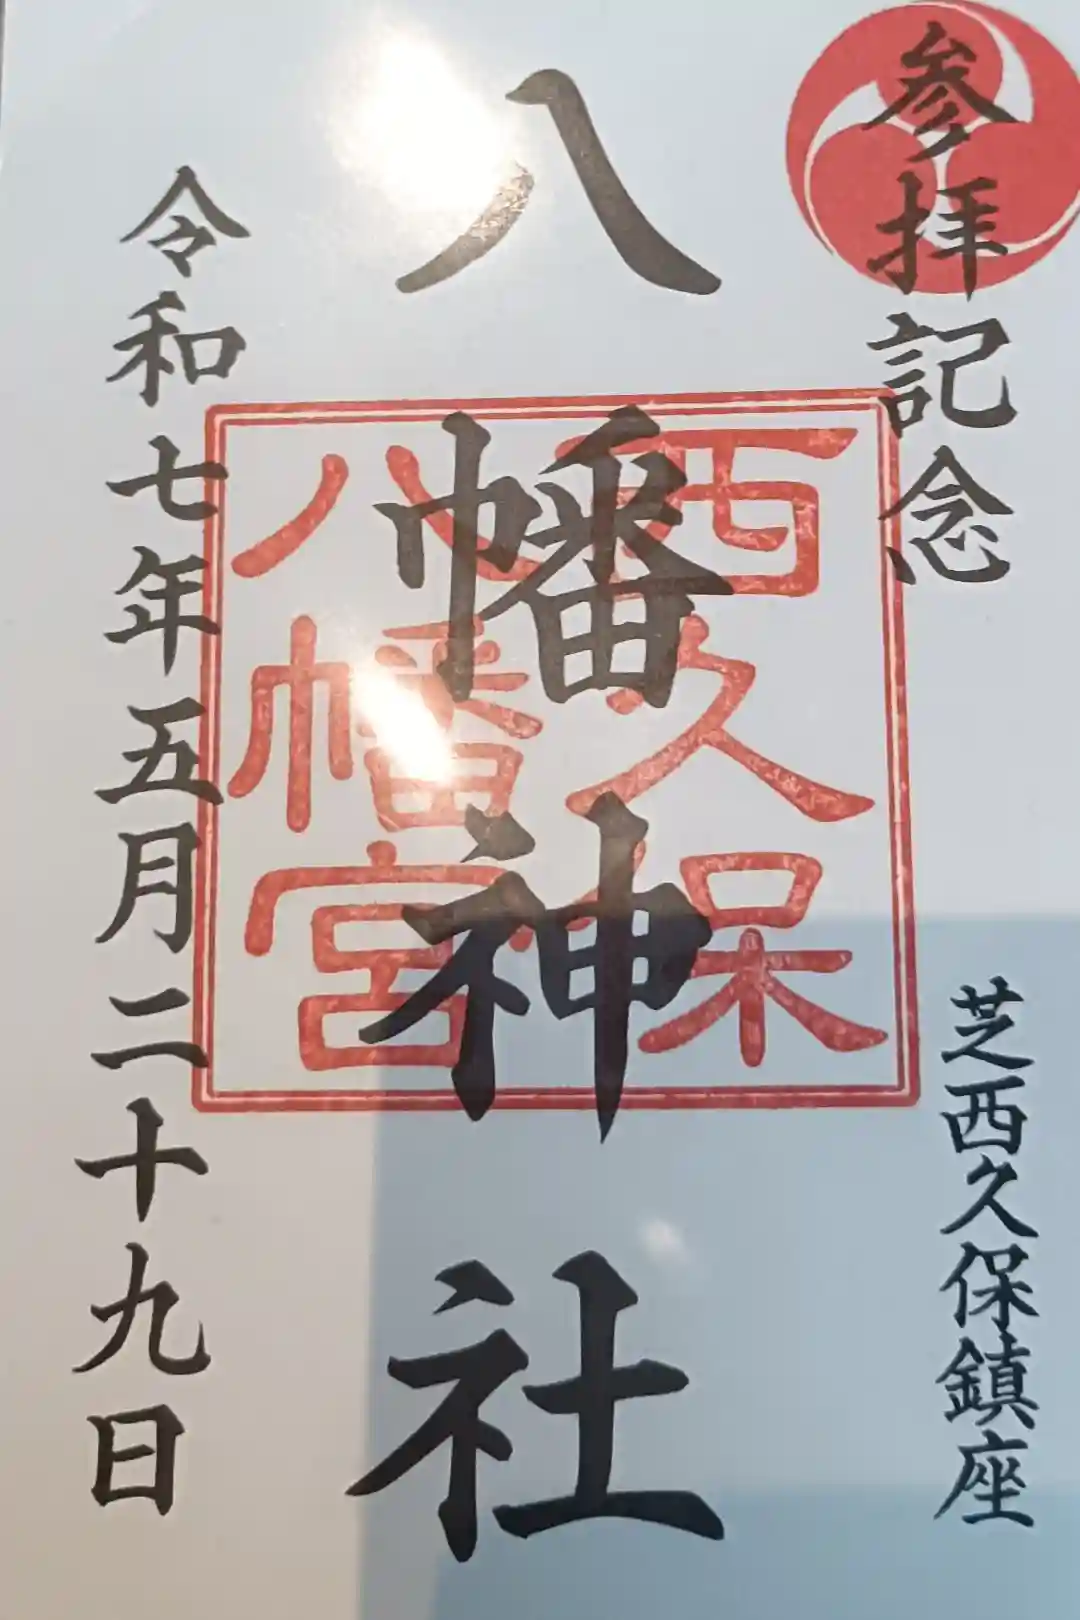 参拝記念
芝西久保鎮座
八幡神社
西久保
八幡宮
令和七年五月二十九日